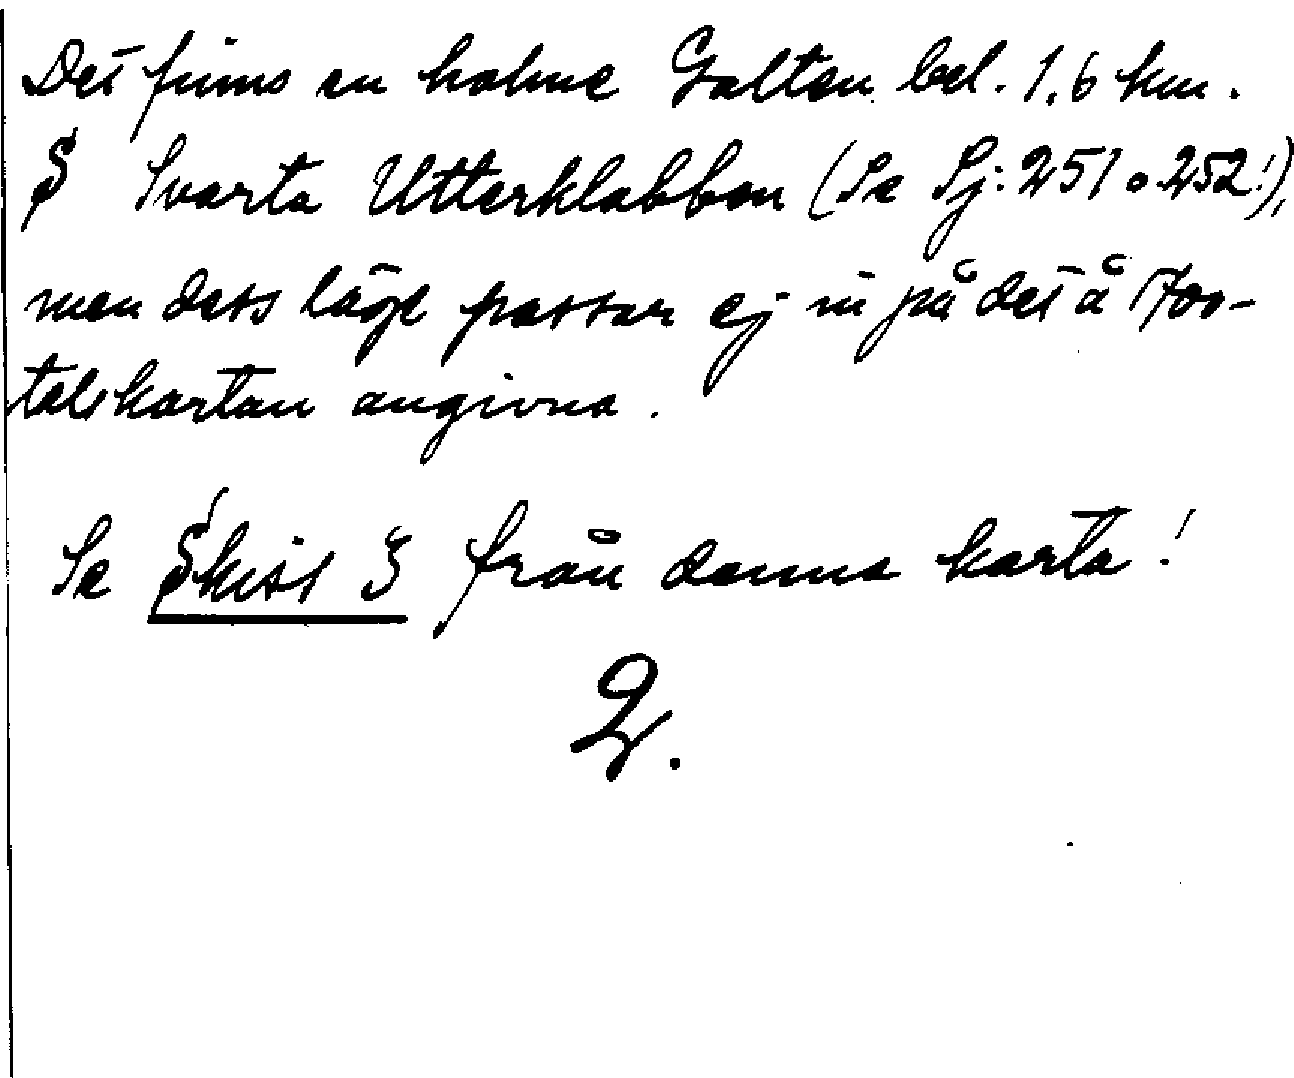 Det finns en holme Galten bel. 1,6 km.
S Svarta Utterklabben (Se Sj: 251 o 252!),
men dess läge passar ej in på det å 1700-
talskartan angivna.
Se Skiss 3 från denna karta!
2.